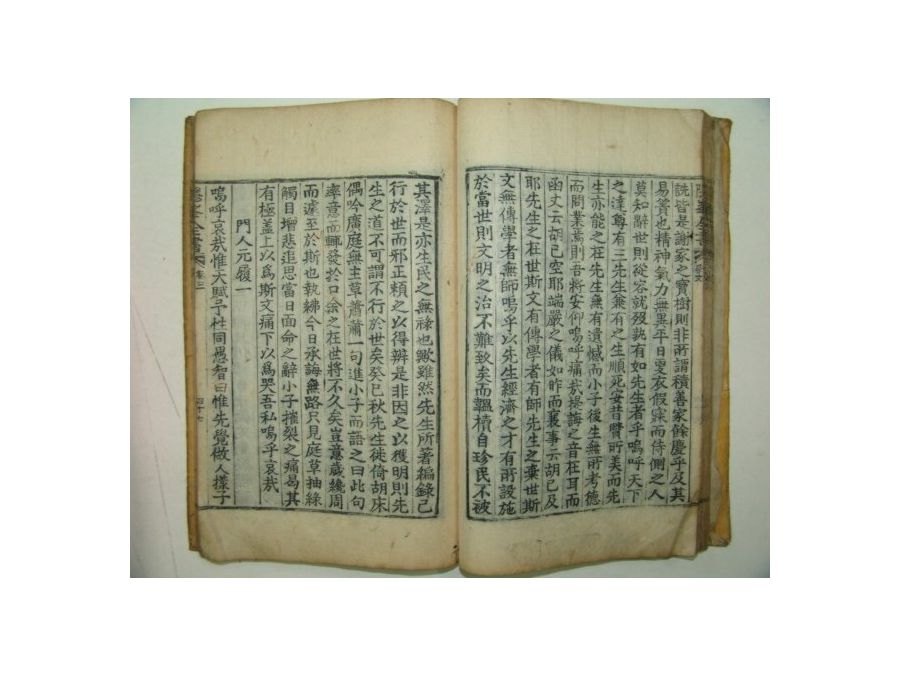 詵皆是謝家之寶樹則非所謂積善家餘慶乎及其
易簀也精神氣力無異平日憂衣假寐而侍側之人
莫知辭世則從容就歿孰有如先生者乎嗚呼天下
之達尊有三先生兼有之生順死安昔賢所美而先
生亦能之在先生無有遺憾而小子後生無所考德
而問業焉則吾將安仰嗚呼痛哉椽誨之音在耳而
函丈云胡已空耶端嚴之儀如昨而襄事云胡已及
耶先生之在世斯文有傳學者有師先生之棄世斯
文無傳學者無師嗚呼以先生經濟之才有所設施
於當世則文明之治不難致矣而韞櫝自珍民不被
其澤是亦生民之無祿也歟雖然先生所著編錄已
行於世而邪正賴之以得辨是非因之以獲明則先
生之道不可謂不行於世矣癸巳秋先生徙倚胡床
偶吟廣庭無主草蕭蕭一句進小子而語之曰此句
率意而輒發於口余之在世將不久矣豈意歲纔周
而遽至於斯也執紼今日承誨無路只見庭草抽綠
觸目增悲追思當日面命之辭小子摧裂之痛曷其
有極盖上以爲斯文痛下以爲哭吾私嗚呼哀哉
門人元履一
嗚呼哀哉惟天賦予性同愚智曰惟先覺做人樣子
全書 卷三 四十七